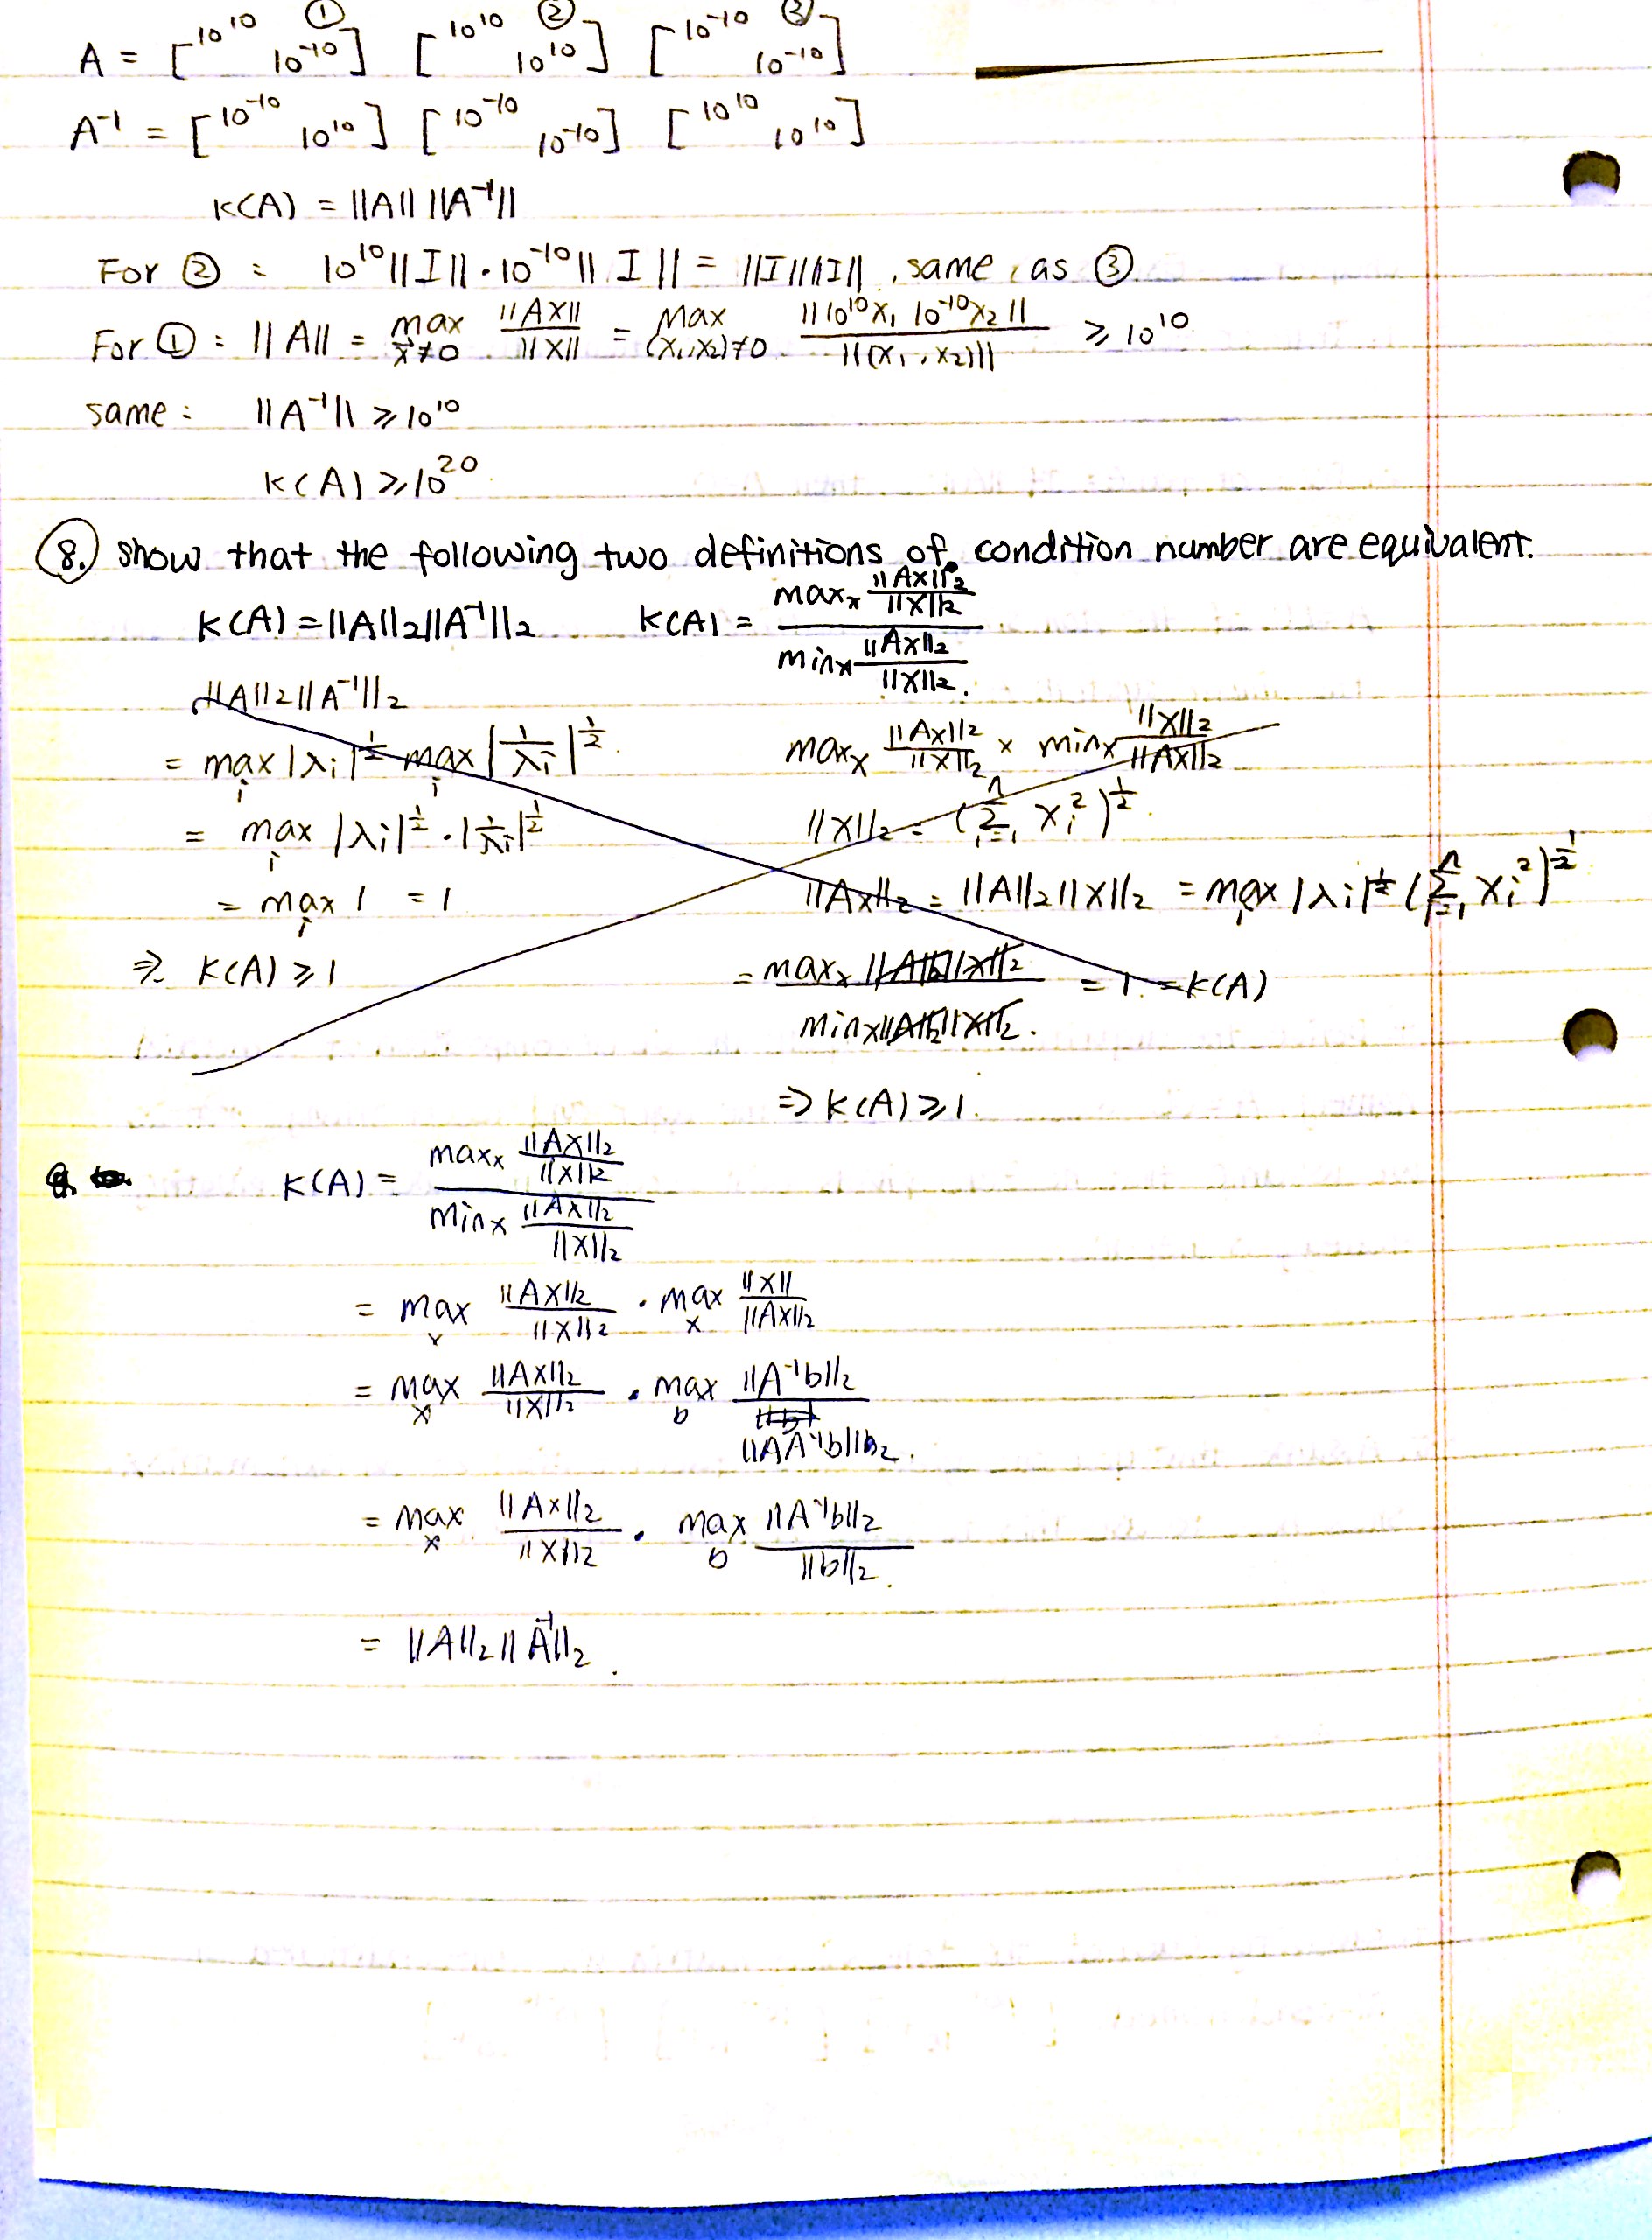 ① ② ③
A = [10^10 10^-10] [10^10 10^10] [10^-10 10^-10]
A^-1 = [10^-10 10^10] [10^-10 10^-10] [10^10 10^10]
K(A) = ||A|| ||A^-1||
For ② : 10^10 ||I|| · 10^-10 || I || = ||I|| ||I||, same as ③
For ① : || A|| = max x≠0 ||AX|| / ||X|| = max (x1,x2)≠0 ||10^10 x1 10^-10 x2|| / ||(x1, x2)|| ≥ 10^10
same : ||A^-1|| ≥ 10^10
K(A) ≥ 10^20
⑧. show that the following two definitions of condition number are equivalent.
K(A) = ||A||2 ||A^-1||2 K(A) = max x ||Ax||2 / ||x||2 / min x ||Ax||2 / ||x||2.
||A||2 ||A^-1||2
= max i |λi|^1/2 max i |1/λi|^1/2. max x ||Ax||2 / ||x||2 × min x ||x||2 / ||Ax||2
= max i |λi|^1/2 · |1/λi|^1/2 ||x||2 = (Σ i=1 n xi^2)^1/2.
= max i 1 = 1 ||Ax||2 = ||A||2 ||x||2 = max i |λi|^1/2 (Σ i=1 n xi^2)^1/2
⇒ K(A) ≥ 1 = max x ||A||2 ||x||2 / min x ||A||2 ||x||2. = 1. = K(A)
⇒ K(A) ≥ 1.
K(A) = max x ||AX||2 / ||X||2 / min x ||AX||2 / ||X||2
= max x ||AX||2 / ||X||2 · max x ||X|| / ||AX||2
= max x ||AX||2 / ||X||2 · max b ||A^-1 b||2 / ||AA^-1 b||2.
= max x ||Ax||2 / ||X||2 · max b ||A^-1 b||2 / ||b||2.
= ||A||2 || A^-1||2.